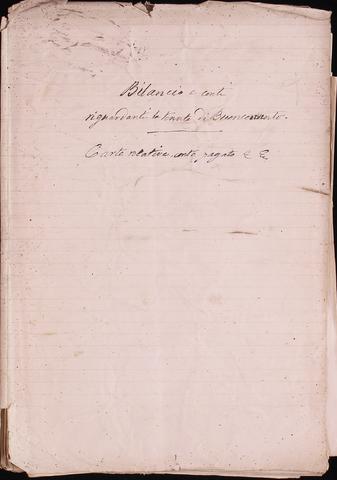 Bilancio e conti
riguardanti le tenute di Buonconvento.
Carte relative, conti, pagate &c &c